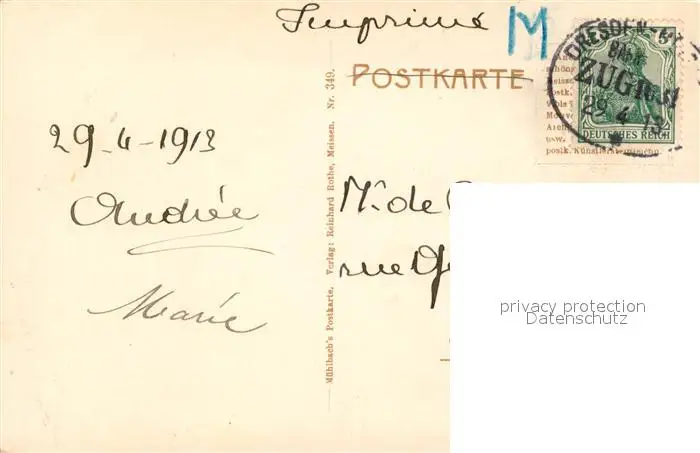 Imprimé
M
POSTKARTE
DRESDEN-
BAHN
ZUG
29 4 13
DEUTSCHES REICH
postk. Künstlersteinzchn.
29-4-1913
Andrée
Marie
Mühlbach's Postkarte. Verlag: Reinhard Rothe, Meissen. Nr. 349.
de
rue
privacy protection
Datenschutz